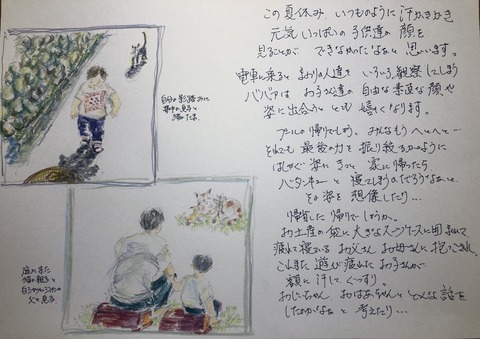 この夏休み、いつものように汗かきかき
元気いっぱいの子供達の顔を
見ることが できなかったなぁと 思います。
電車に乗ると まわりの人達を いろいろ観察してしまう
ババァは お子さん達の 自由な素直な顔や
姿に出会うと とても 嬉しくなります。
プールの帰りでしょう。みんなもうへとへと…
それでも 最後の力を 振り絞るかのように
はしゃぐ姿に きっと 家に帰ったら
バタンキューと 寝てしまうのだろうなぁと、
その姿を 想像したり…
帰省した 帰りでしょうか。
お土産の袋に 大きなスーツケースに囲まれて
疲れて寝ている お父さん お母さんに 抱っこされ
これまた 遊び疲れた お子さんが
額に 汗して ぐっすり。
おじいちゃん おばあちゃんと どんな 話を
したのかなぁと 考えたり…
自分の影踏みに
夢中の息子と
猫 たま
庭にきた
猫の親子と
白シャツ
父と息子